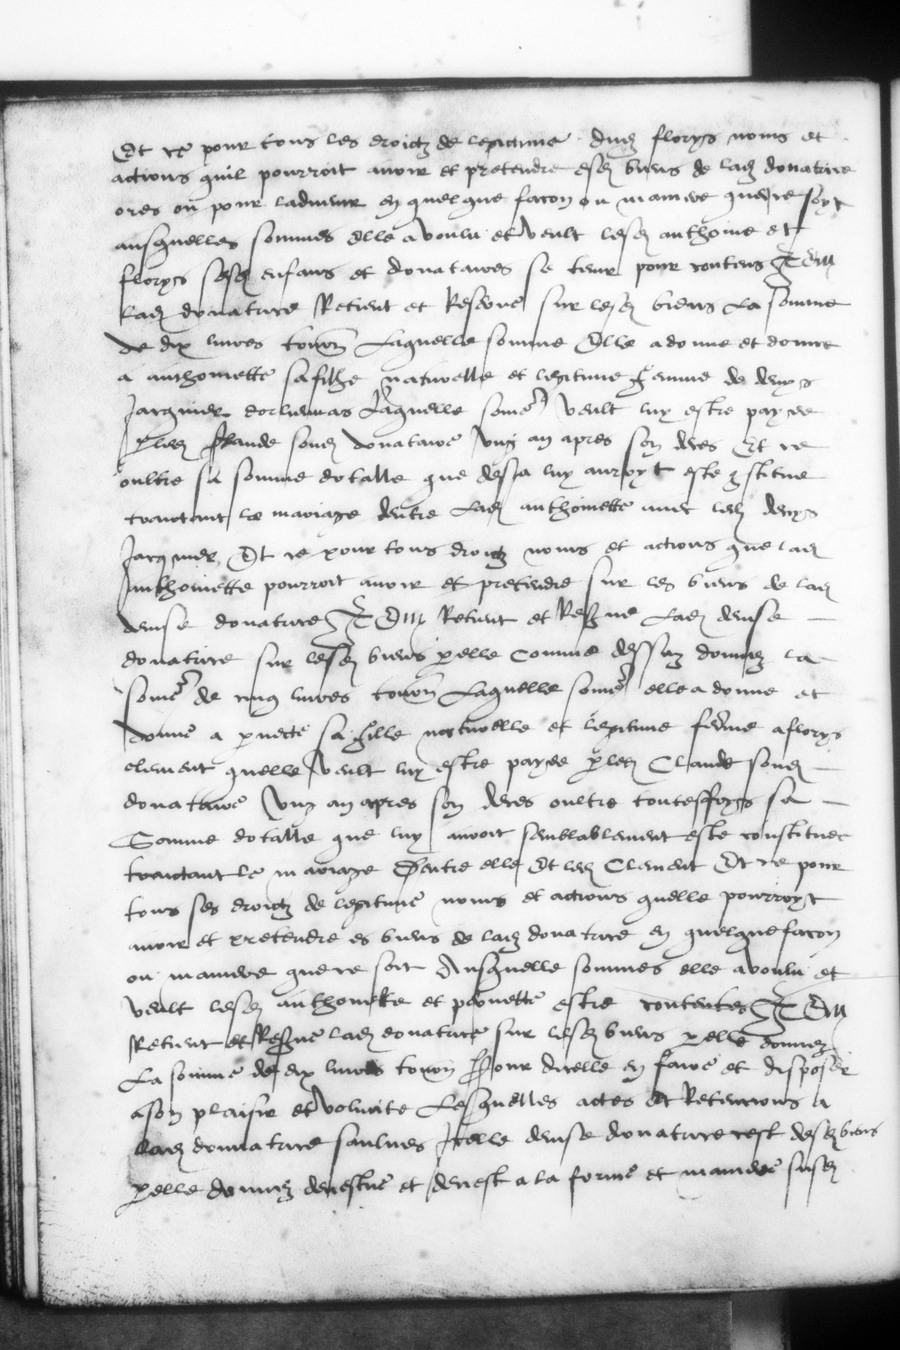 Et ce pour tous les droictz de legitime . dud florys noms et
actions quil pourroit avoir et pretendre esd biens de lad donatrice
ores ou pour ladvenir en quelque facon ou maniere que ce soyt
ausquelles sommes elle a voulu et veult lesd anthoine et
florys sesd enfans et donataires se tenir pour contens Item
Lad donatrice Retient et Reserve sur lesd biens La somme
de dix livres tourn Laquelle somme Elle a donne et donne
a anthoinette sa filhe naturelle et legitime femme de denys
Jacquier Laquelle some veult luy estre payee
p led Glaude soned donataire Ung an apres son deces Et ce
oultre sa somme dotalle que desja luy auroyt este 9stitue
traictant le mariage dentre Lad anthoinette avec led denys
Jacquier Et ce pour tous droictz noms et actions que lad
Anthoinette pourroit avoir et pretendre sur les biens de lad
denise donatrice Item Retient et Res9ve Lad denise
donatrice sur lesd biens p elle comme dessus donnez la
some de cinq livres tourn Laquelle some elle a donne et
donne a p nette sa fille naturelle et legitime feme a florys
clement quelle veult luy estre payee p led Claude soned
donataire Ung an apres son deces oultre toutesffoys sa
Somme dotalle que luy avoit semblablement este constituee
traictant le mariage Dentre elle Et led Clement Et ce pour
tous ses droictz de legitime noms et actions quelle pourroyt
avoir et pretendre es biens de lad donatrice en quelque facon
ou maniere que ce soit Ausquelle sommes elle a voulu et
veult lesd anthoinette et pernette estre contentes Item
Retient et Res9ve lad donatrice sur lesd biens p elle donnez
La somme de dix livres tourn Pour dicelle en faire et disposer
a son plaisir et volunte Lesquelles actes et Retencions a
lad donnatrice saulves Icelle denise donatrice cest desd biens
p elle donnez devestue et devest a la forme et maniere susd